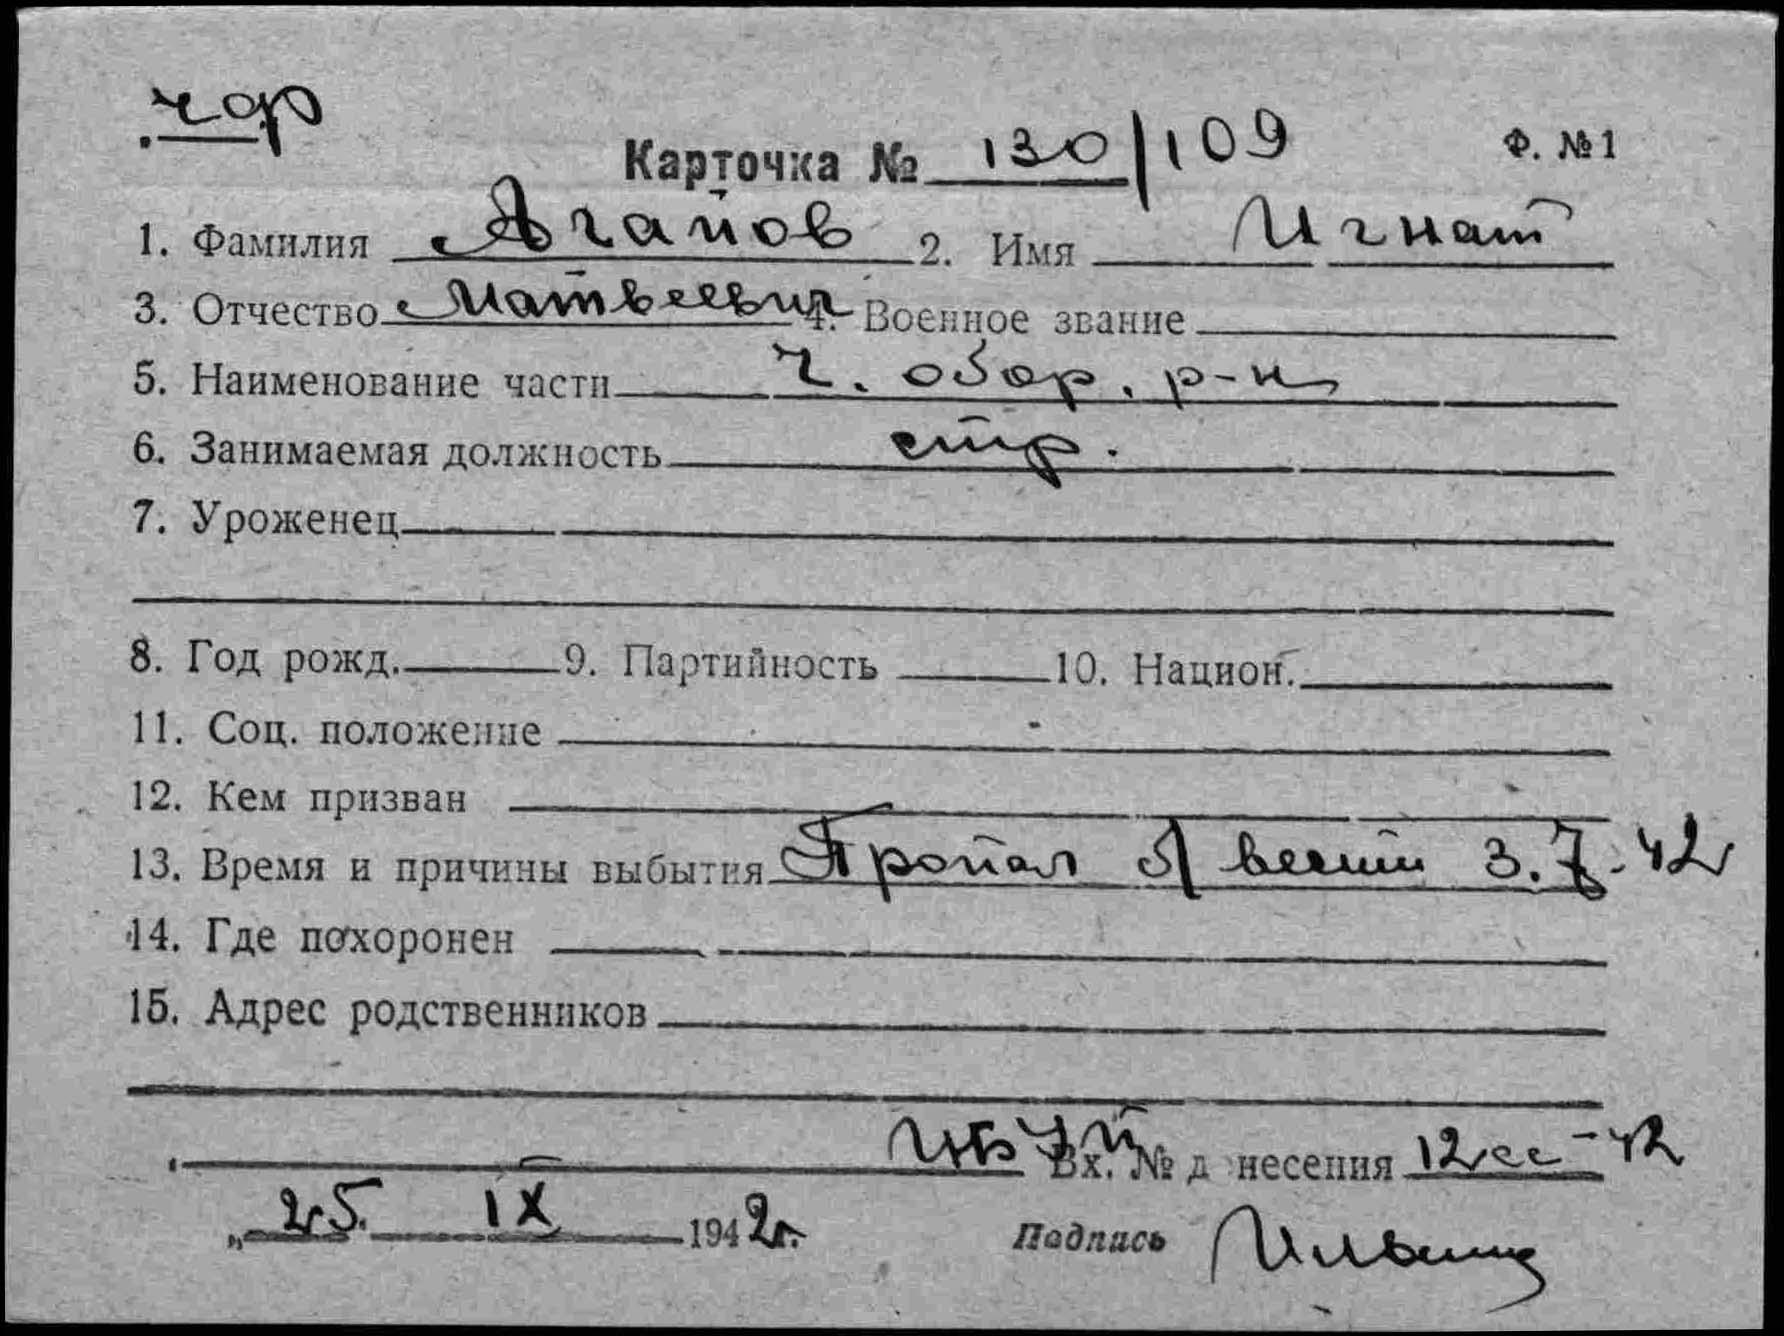 чф
Карточка № 130/109 Ф. №1
1. Фамилия Агапов 2. Имя Игнат
3. Отчество Матвеевич 4. Военное звание
5. Наименование части Ч. обор. р-н
6. Занимаемая должность стр.
7. Уроженец
8. Год рожд. 9. Партийность 10. Национ.
11. Соц. положение
12. Кем призван
13. Время и причины выбытия Пропал б/вести 3.7.42
14. Где похоронен
15. Адрес родственников
Вх. № д несения 12сс-42
„25. IX 1942г. Подпись